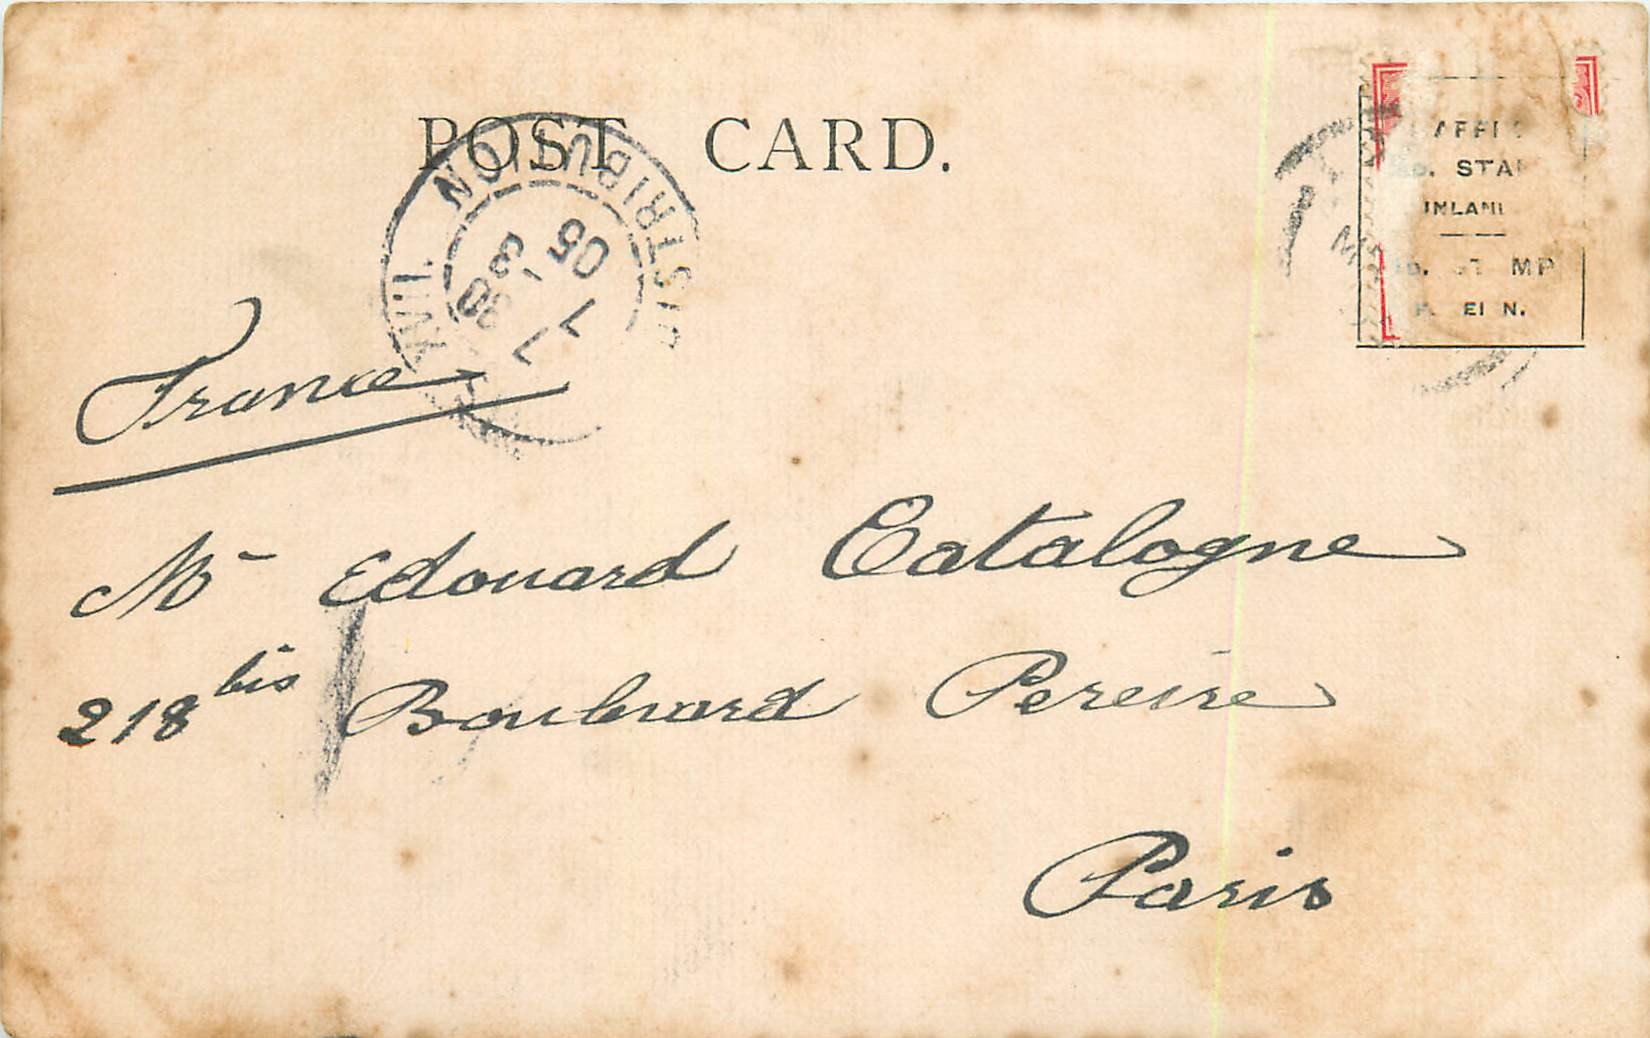 POST CARD.
DISTRIBUTION
XVII.
7 30
7 3
05
STA
INLAN
MP
EI N.
France
Mr Edouard Catalogne
218 bis Boulevard Pereire
Paris